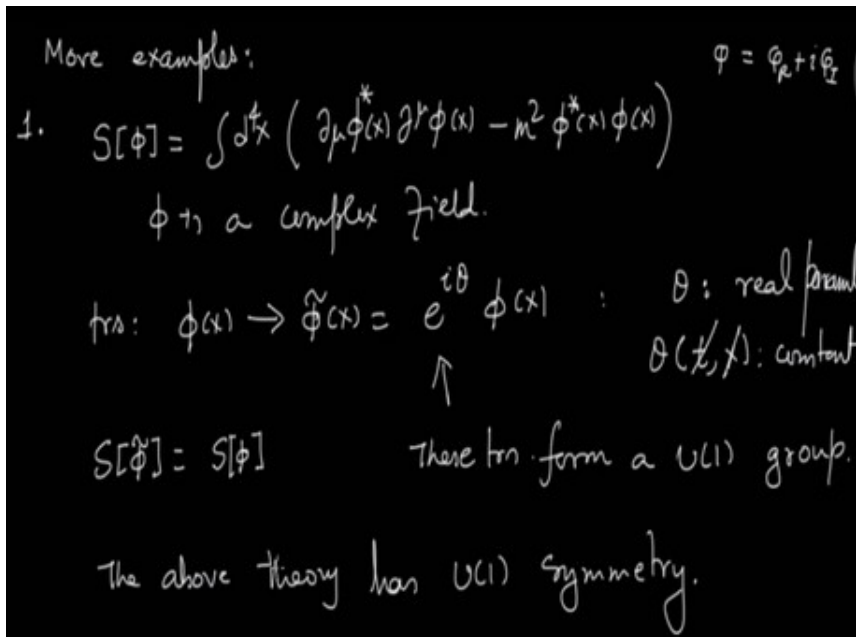 More examples:
φ = φ_R + iφ_I
1. S[ϕ] = ∫d⁴x ( ∂_μϕ*(x) ∂^μϕ(x) − m² ϕ*(x) ϕ(x) )
ϕ is a complex field.
trs: ϕ(x) → ϕ̃(x) = e^{iθ} ϕ(x) : θ: real param
θ(t, x): constant
↑
S[ϕ̃] = S[ϕ] These trn. form a U(1) group.
The above theory has U(1) symmetry.